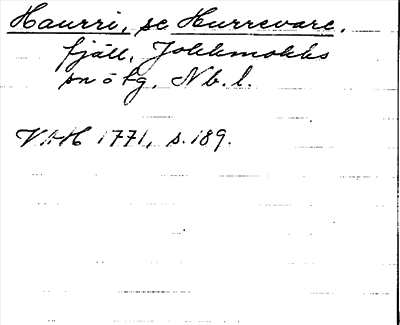 Haurri, se Hurrevare,
fjäll, Jokkmokks
sn o tg, Nb. l.
VAH 1771, s. 189.